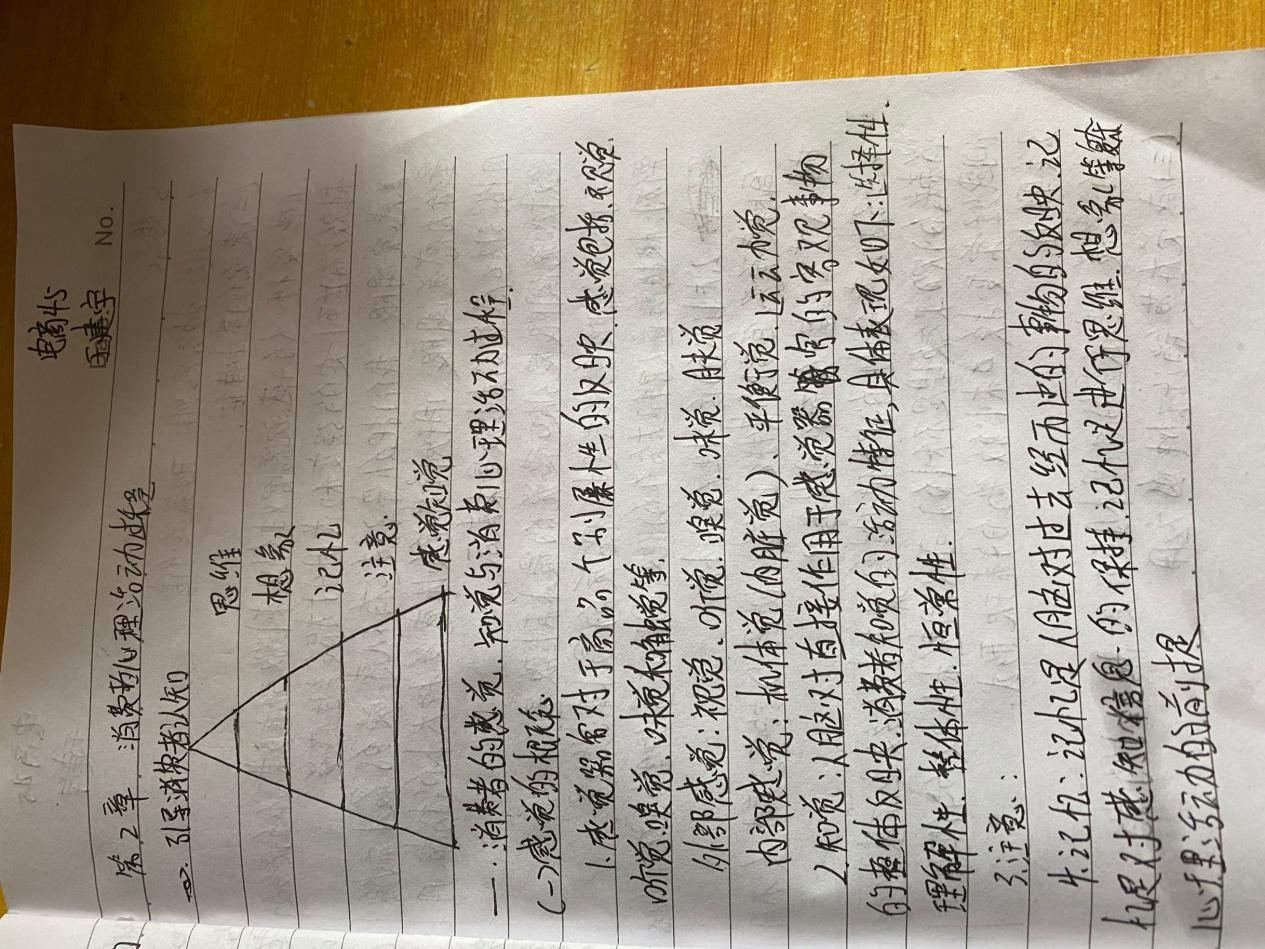 电商
No.
第2章 消费者心理活动过程
引导消费者认知
思维
想象
记忆
注意
感觉知觉
一. 消费者的感觉、知觉与消费心理活动过程.
(一)感觉的概念
1.感觉器官对于商品个别属性的反映.感觉包括.视觉.
听觉嗅觉、味觉和触觉等.
外部感觉:视觉、听觉.嗅觉.味觉.肤觉
内部感觉:机体觉(内脏觉)、平衡觉.运动觉.
2.知觉:人脑对直接作用于感觉器官的客观事物
的整体反映.消费者知觉的活动特征,具体表现如下:选择性.
理解性.整体性.恒常性.
3.注意:
4.记忆:记忆是人脑对过去经历过的事物的反映.记
忆是对感知信息的保持.记忆是进行思维.想象等
心理活动的前提